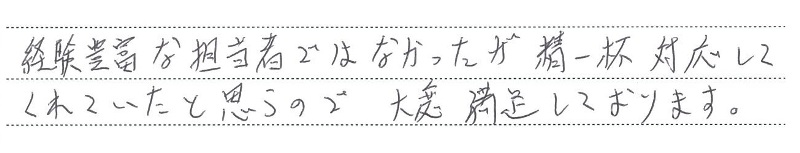 経験豊富な担当者ではなかったが 精一杯 対応して
くれていたと思うので 大変 満足しております。